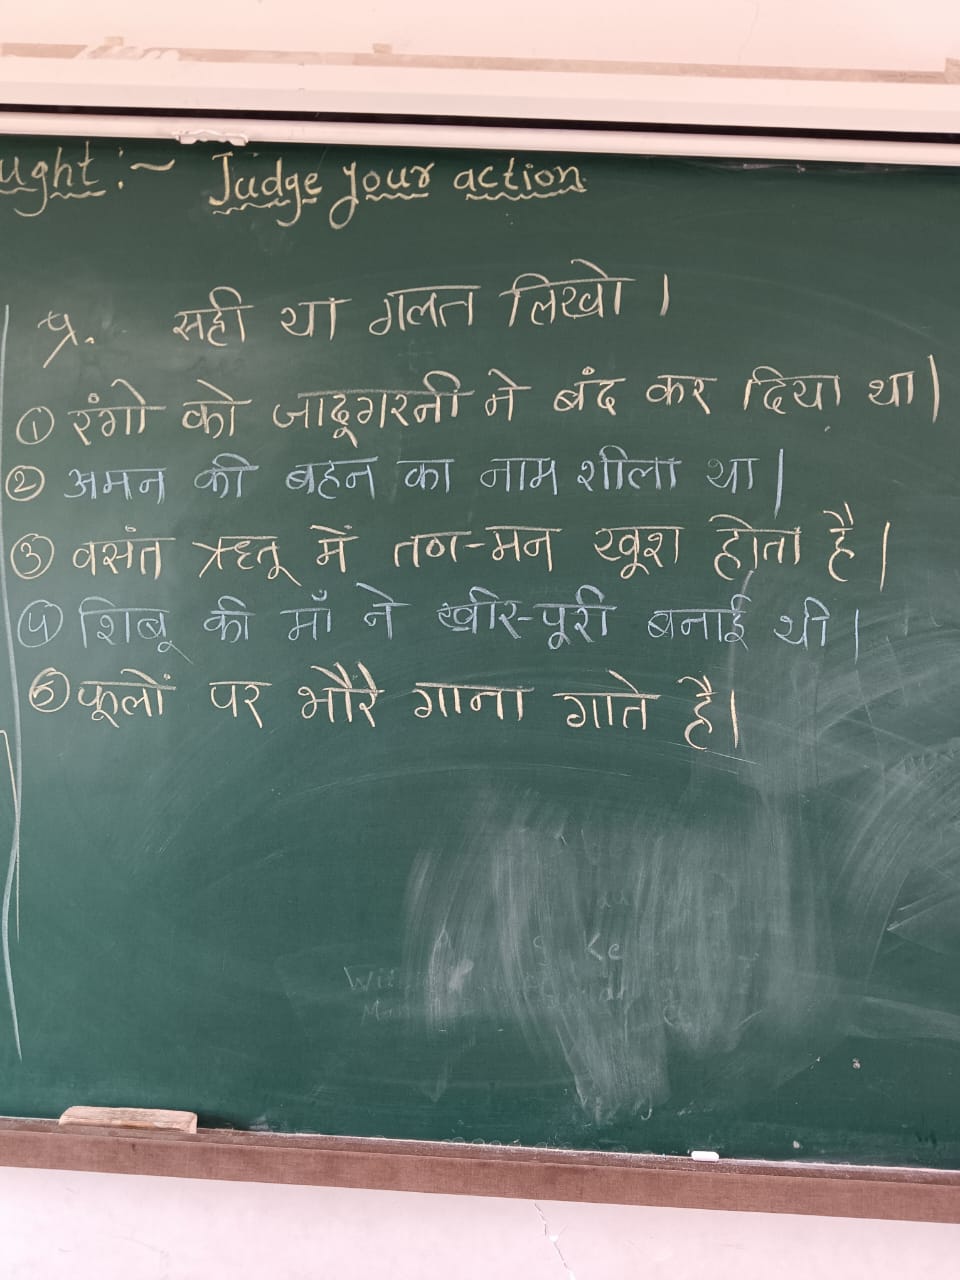 ught :~ Judge your action
प्र. सही या गलत लिखो ।
① रंगो को जादूगरनी ने बंद कर दिया था।
② अमन की बहन का नाम शीला था।
③ वसंत ऋतू में तण-मन खूश होता है।
④ शिबू की माँ ने खीर-पूरी बनाई थी।
⑤ फूलों पर भौरै गाना गाते है।